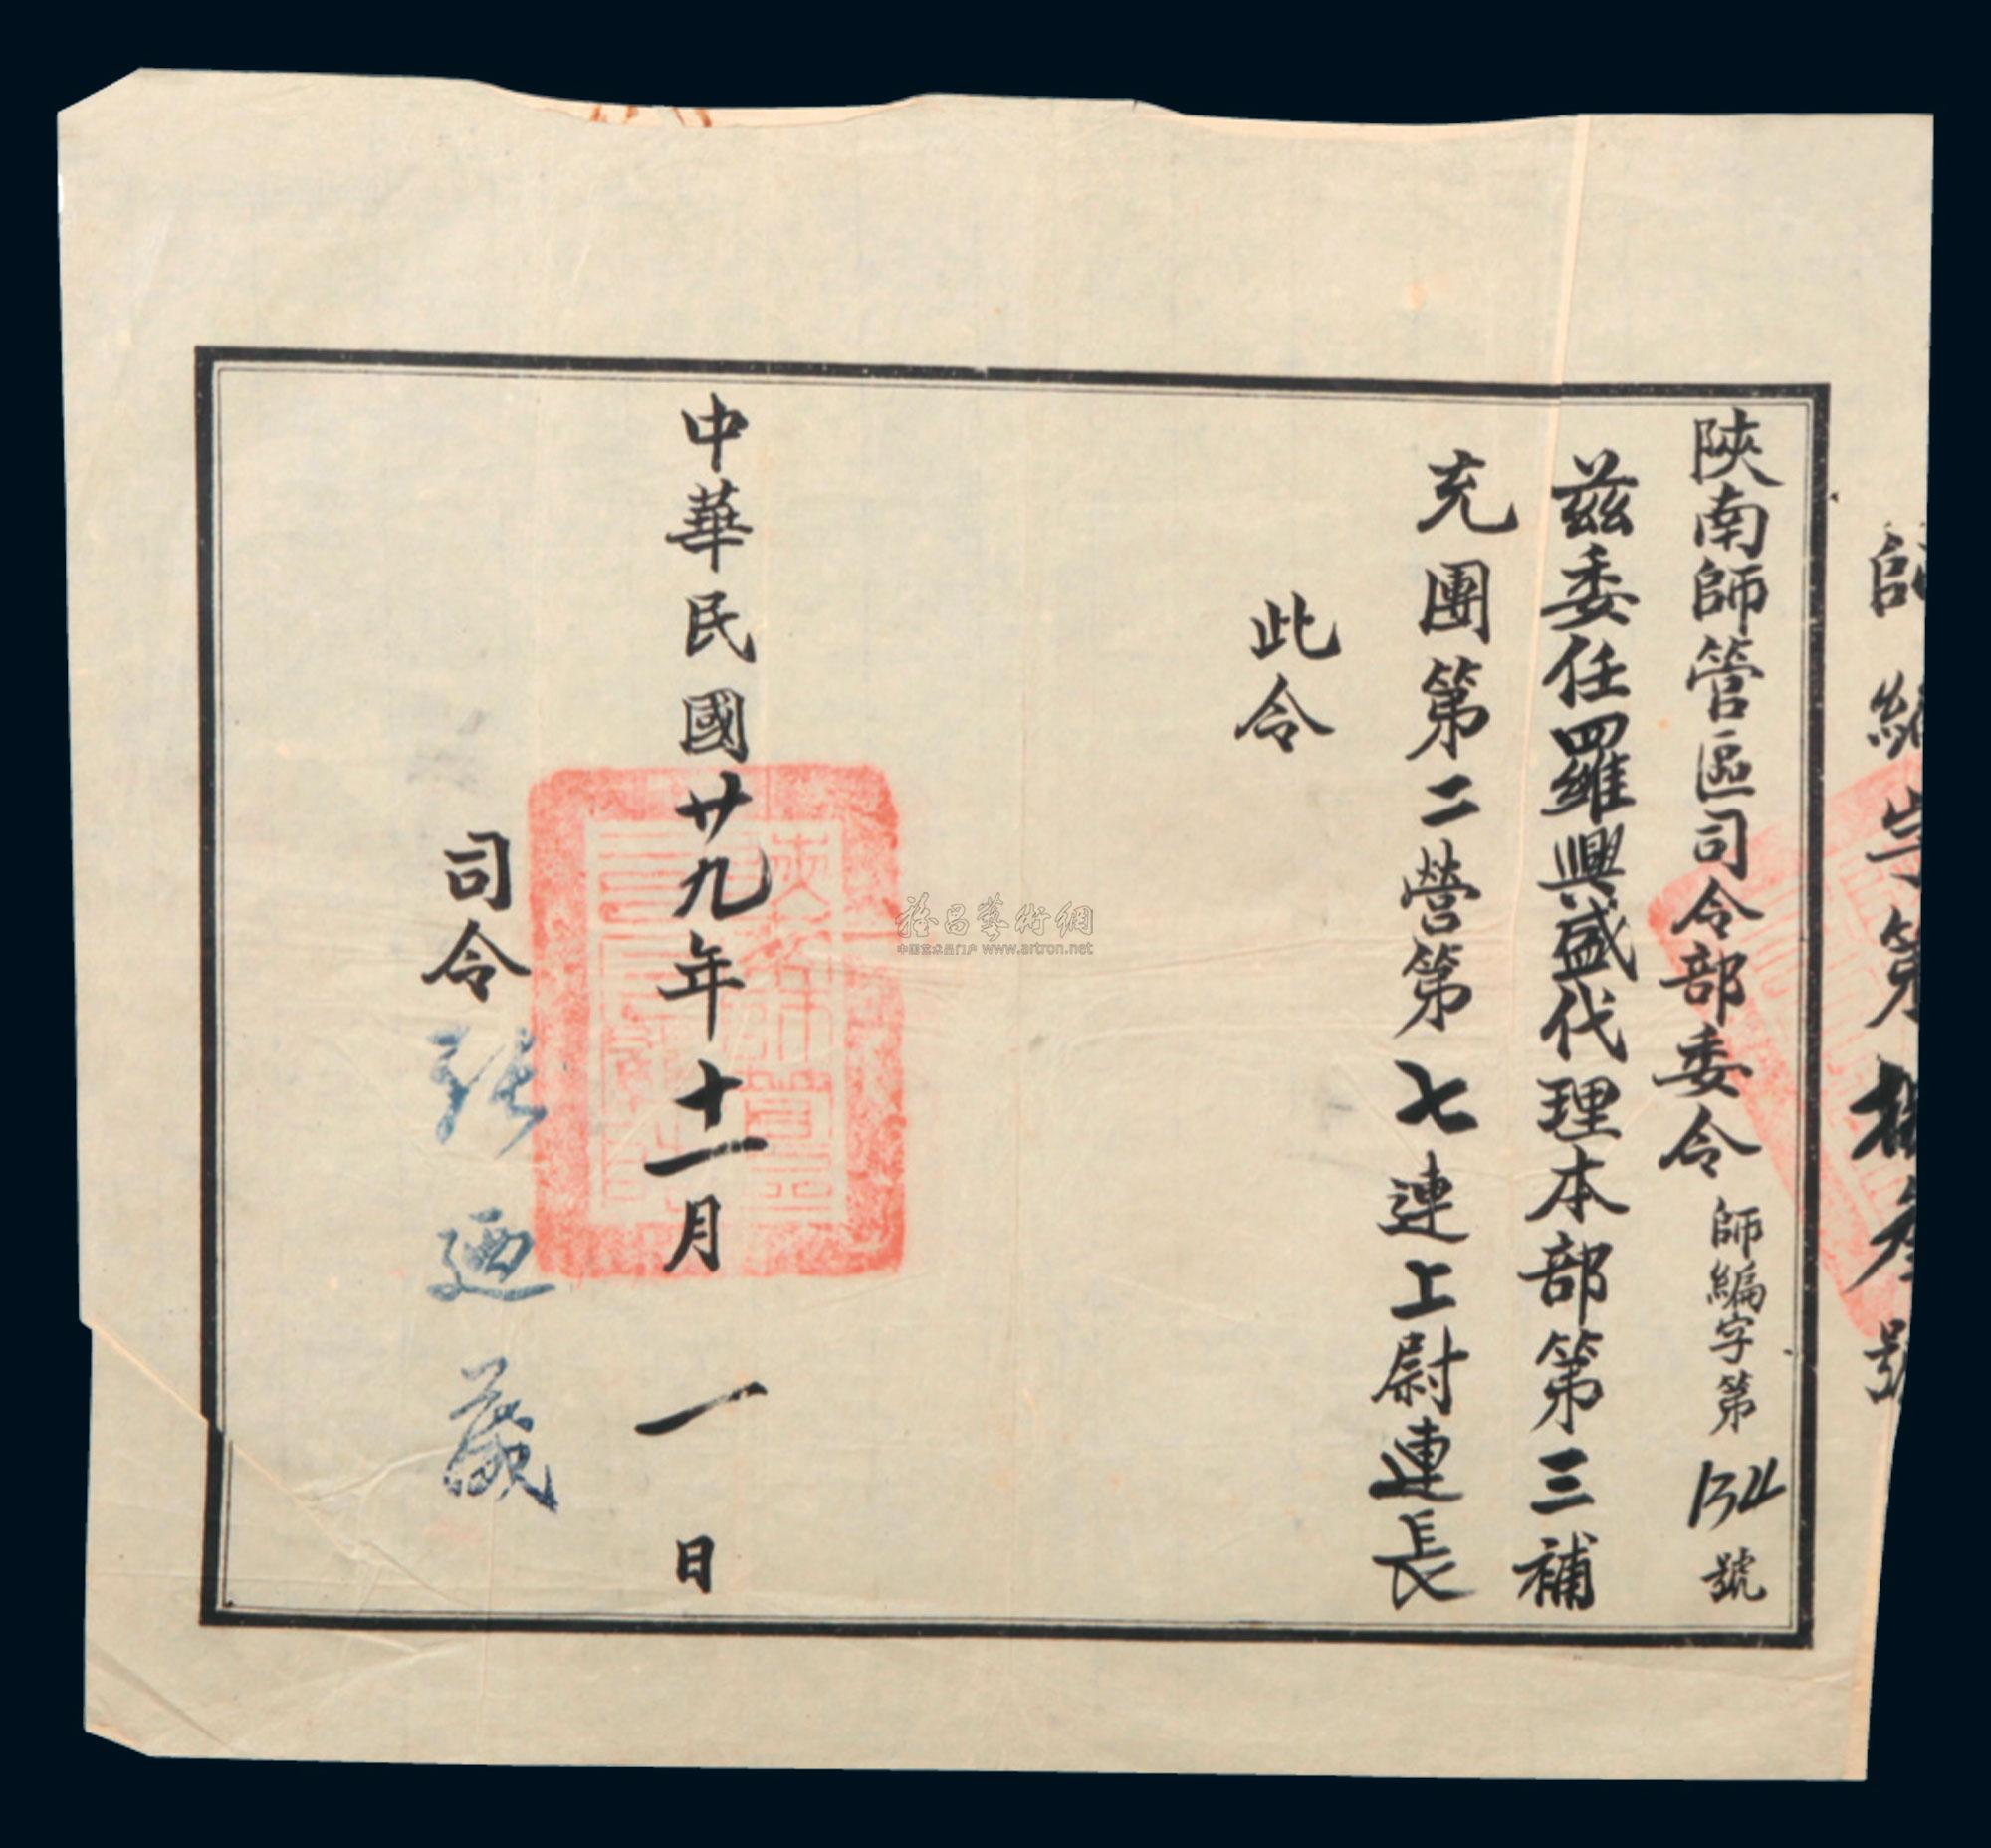 師編字第
陝南師管區司令部委令 師編字第134號
茲委任羅興盛代理本部第三補
充團第二營第七連上尉連長
此令
中華民國廿九年十一月一日
司令張迺葳
雅昌藝術網
中国艺术品门户 www.artron.net